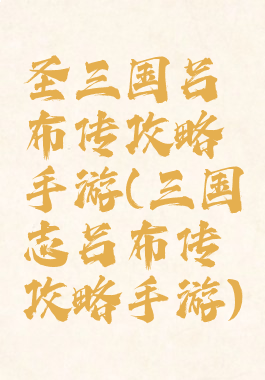 圣三国吕
布传攻略
手游(三国
志吕布传
攻略手游)